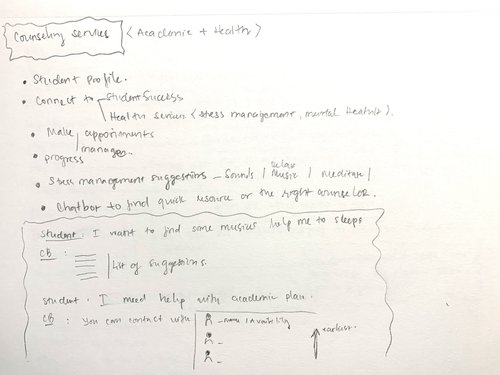 Counseling services < Academic + Health >
• Student profile.
• Connect to - Student Success
Health services < stress management, mental health >.
• Make appointments
manage
• progress
• Stress management suggestions - Sounds / relax Music / meditate /
• Chatbot to find quick resource or the right counselor.
Student : I want to find some musics help me to sleeps
CB : List of suggestions.
Student . I need help with academic plan.
CB : You can contact with - name / availability
-
-
earliest.